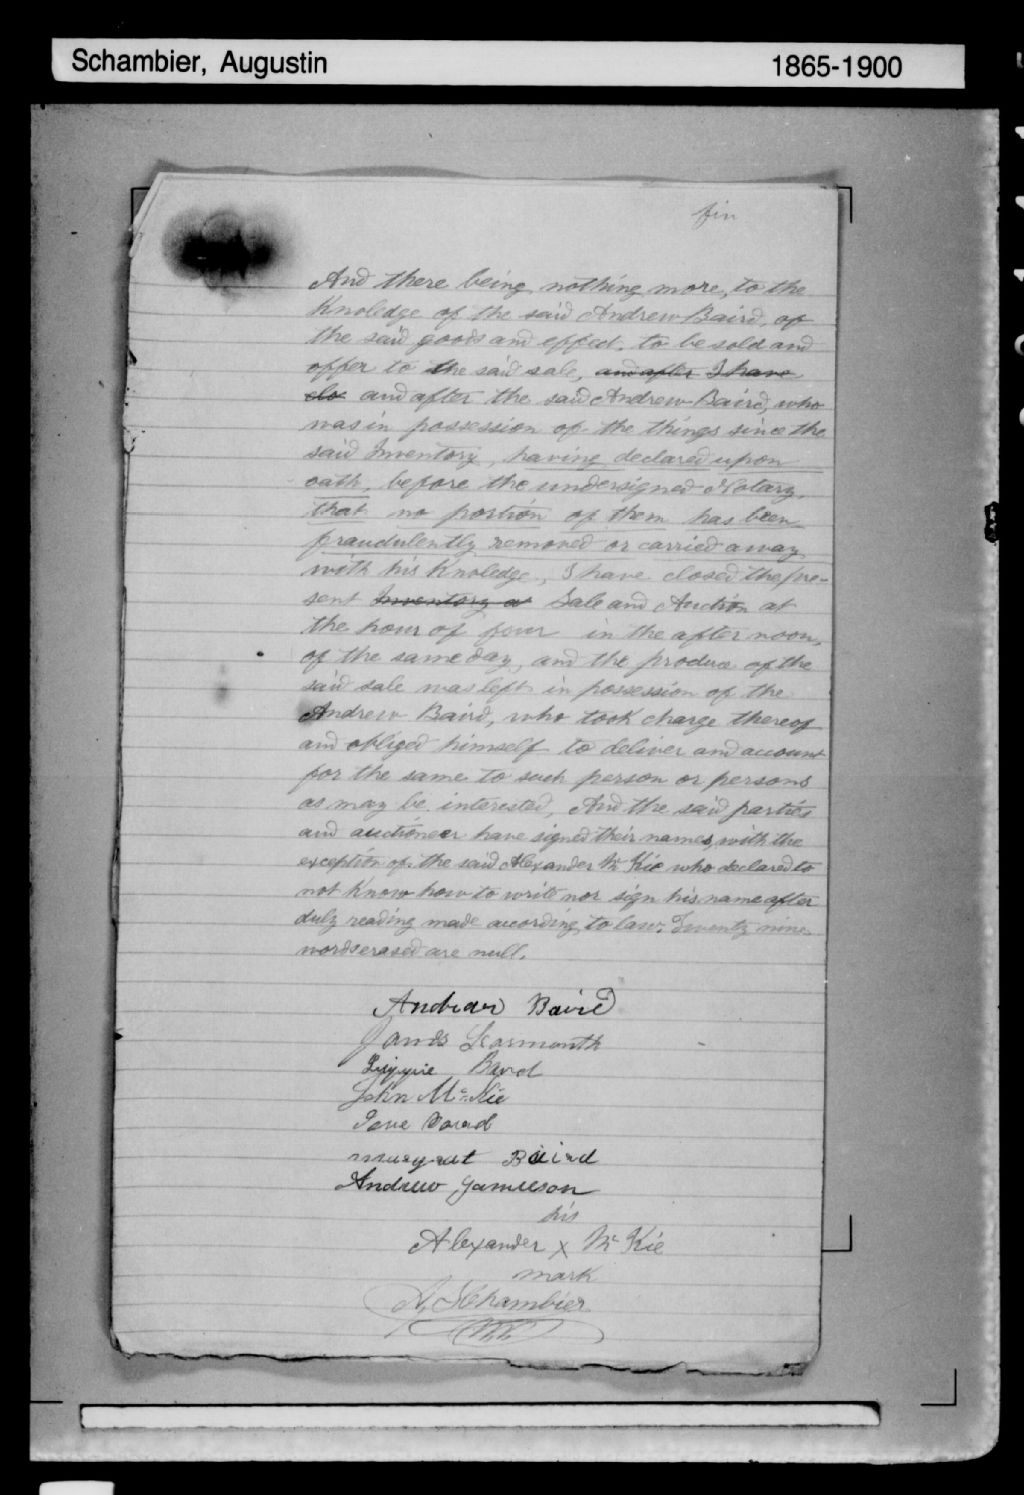 Schambier, Augustin 1865-1900
fin
And there being nothing more, to the
Knoledge of the said Andrew Baird, of
the said goods and effect. to be sold and
offer to the said sale, and after I have
clo and after the said Andrew Baird, who
was in possession of the things since the
said Inventory, having declared upon
oath, before the undersigned Notary,
that no portion of them has been
fraudulently removed or carried away
with his Knoledge, I have closed the pre-
sent Inventory a Sale and Auction at
the hour of four in the after noon,
of the same day, and the produce of the
said sale was left in possession of the
Andrew Baird, who took charge thereof
and obliged himself to deliver and account
for the same to such person or persons
as may be interested, And the said parties
and auctioneer have signed their names, with the
exception of the said Alexander Mc Kie who declared to
not Know how to write nor sign his name after
duly reading made according to law. Twenty nine
words erased are null.
Andrew Baird
James Learmonth
Baird
John Mc Kie
Baird
Baird
Andrew Jamieson
his
Alexander x Mc Kie
mark
A. Schambier